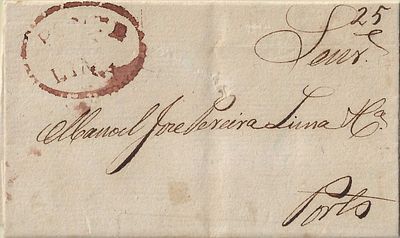 PONTE
LIMA
25
Senr.e
Manoel Joze Pereira Lima &Ca
Porto